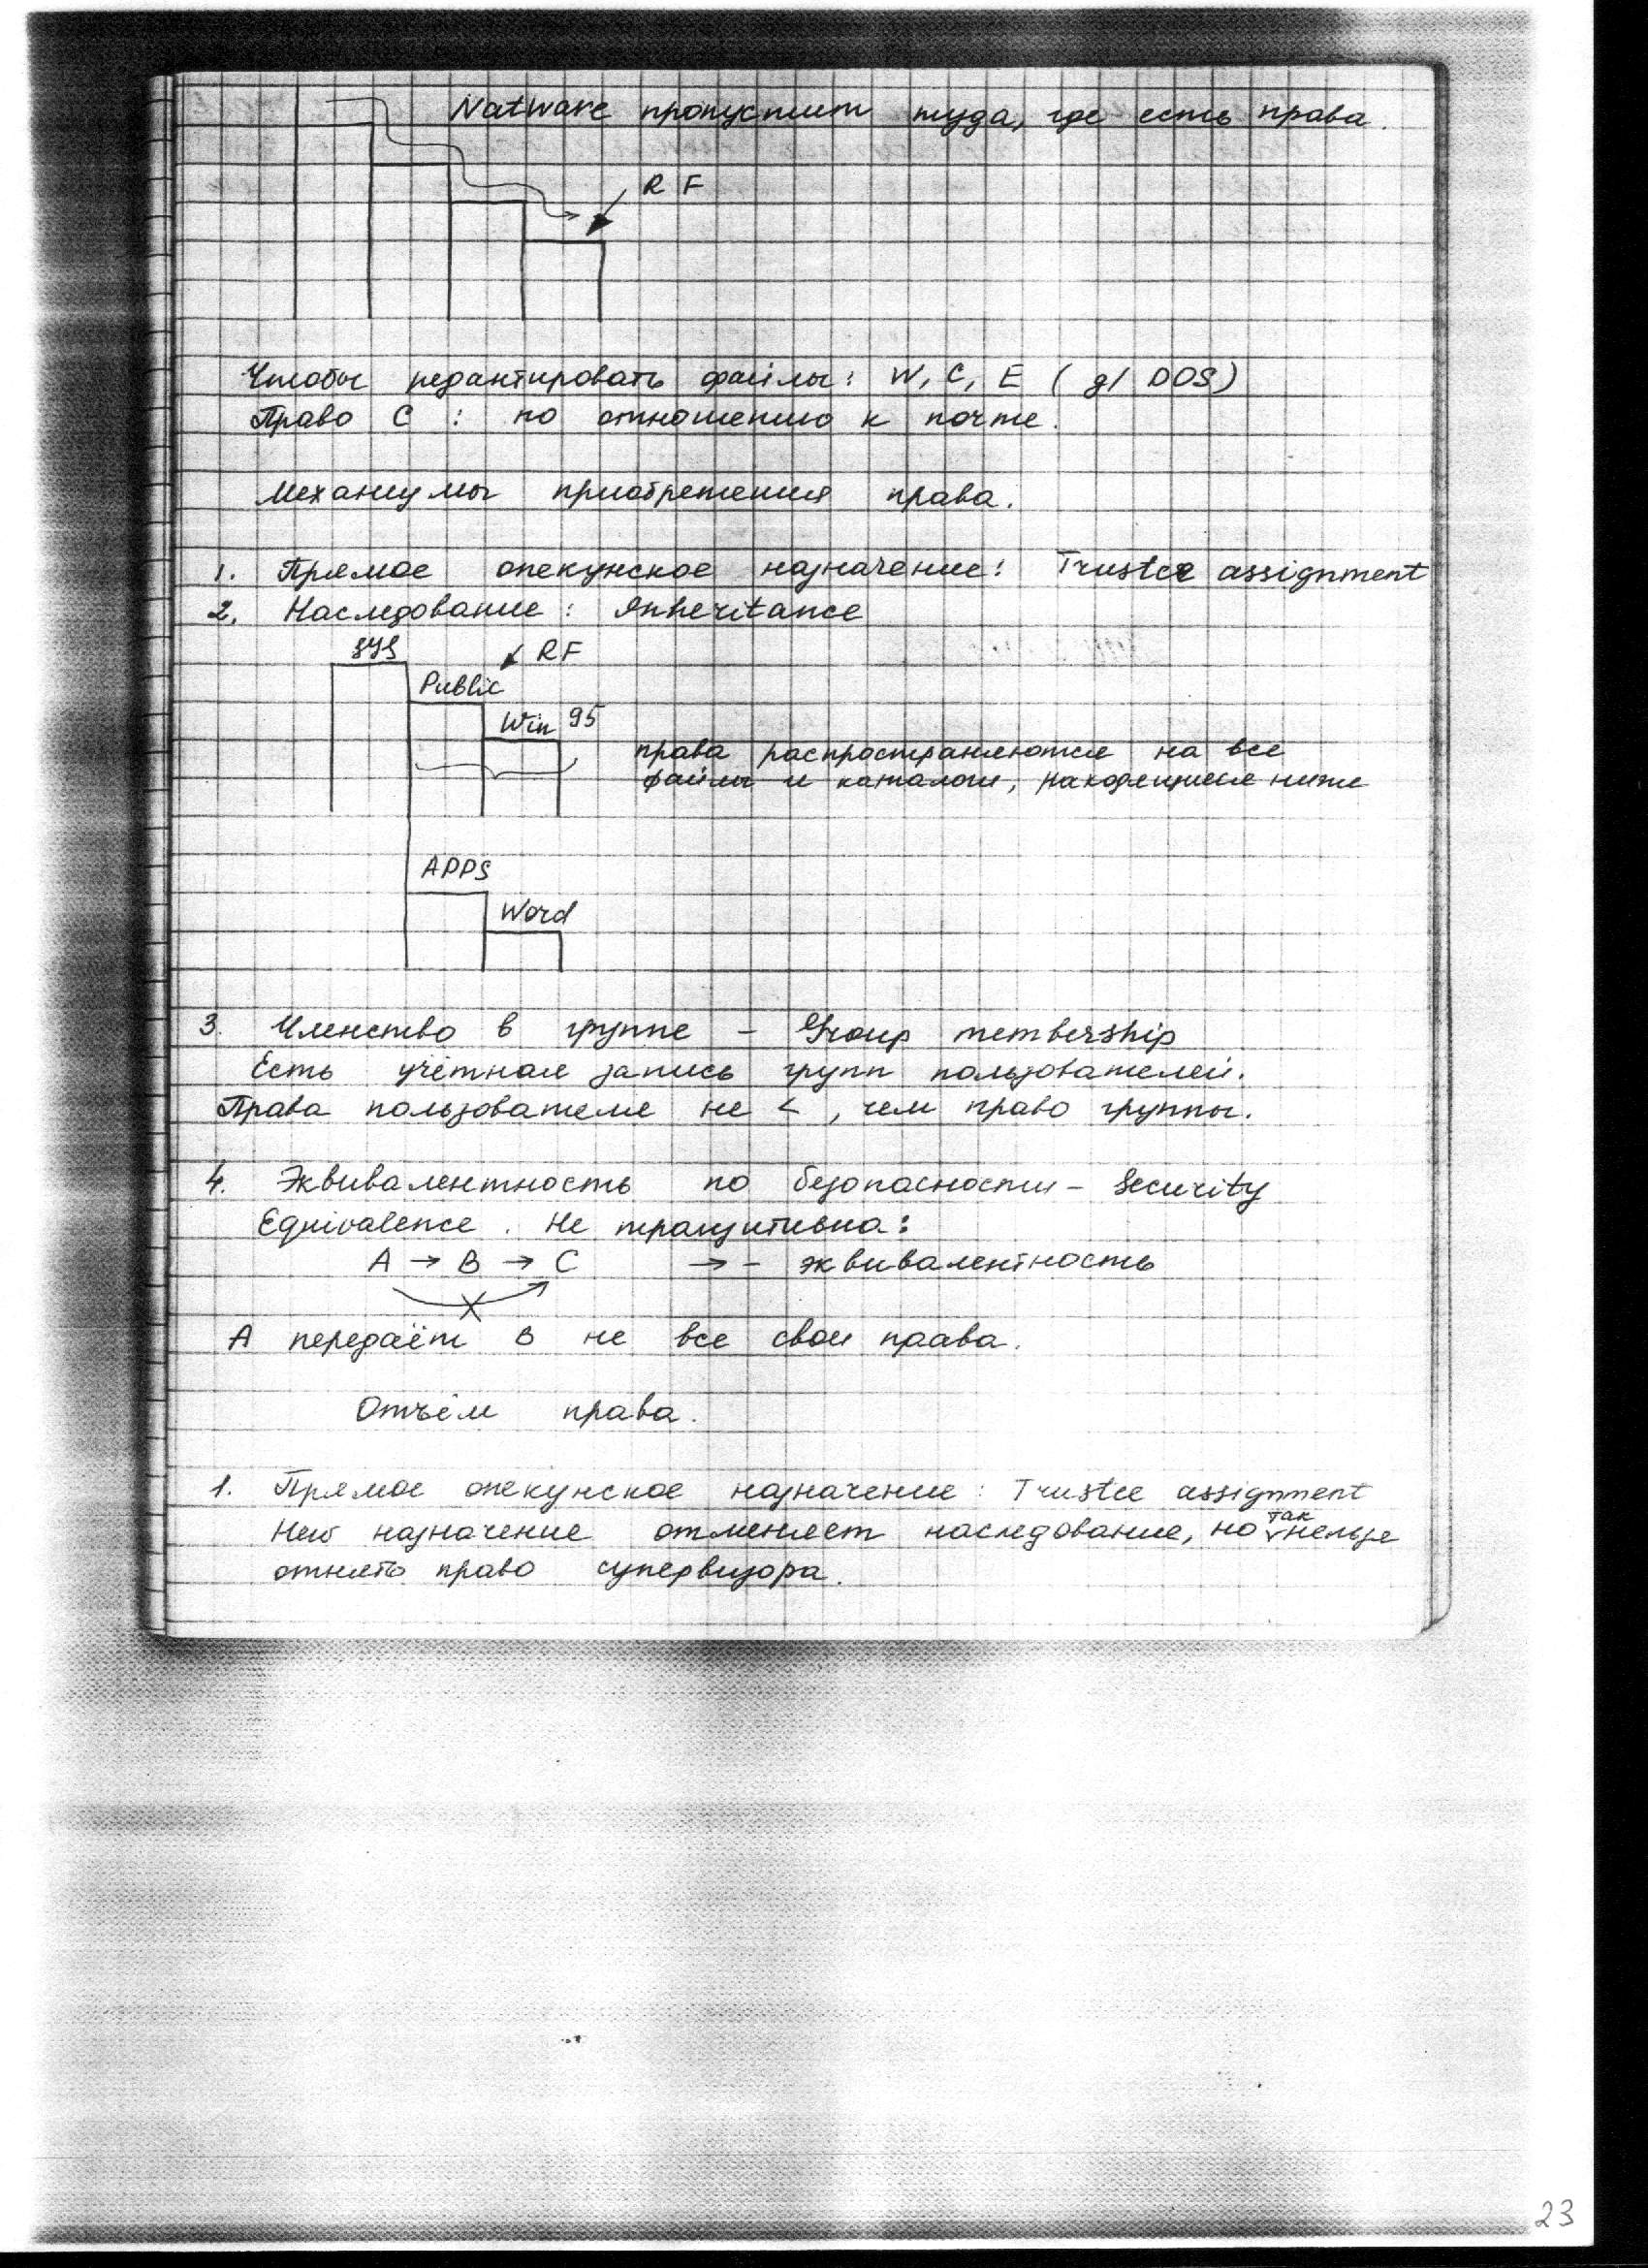 Natware пропустит туда, где есть права.
R F
Чтобы редактировать файлы: W, C, E (д/ DOS)
Право C : по отношению к почте.
Механизмы приобретения права.
1. Прямое опекунское назначение: Trustee assignment
2. Наследование: Inheritance
SYS
RF
Public
Win 95
права распространяются на все
файлы и каталоги, находящиеся ниже
APPS
Word
3. Членство в группе – Group membership
Есть учётная запись групп пользователей.
Права пользователя не <, чем право группы.
4. Эквивалентность по безопасности – Security
Equivalence. Не транзитивна:
A → B → C → – эквивалентность
А передаёт В не все свои права.
Отъём права.
1. Прямое опекунское назначение: Trustee assignment
New назначение отменяет наследование, но так нельзя
отнять право супервизора.
23